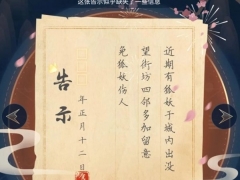 这张告示似乎缺失了一些信息
近期有狐妖于城内出没
望街坊四邻多加留意
免狐妖伤人
年正月十二日
告示